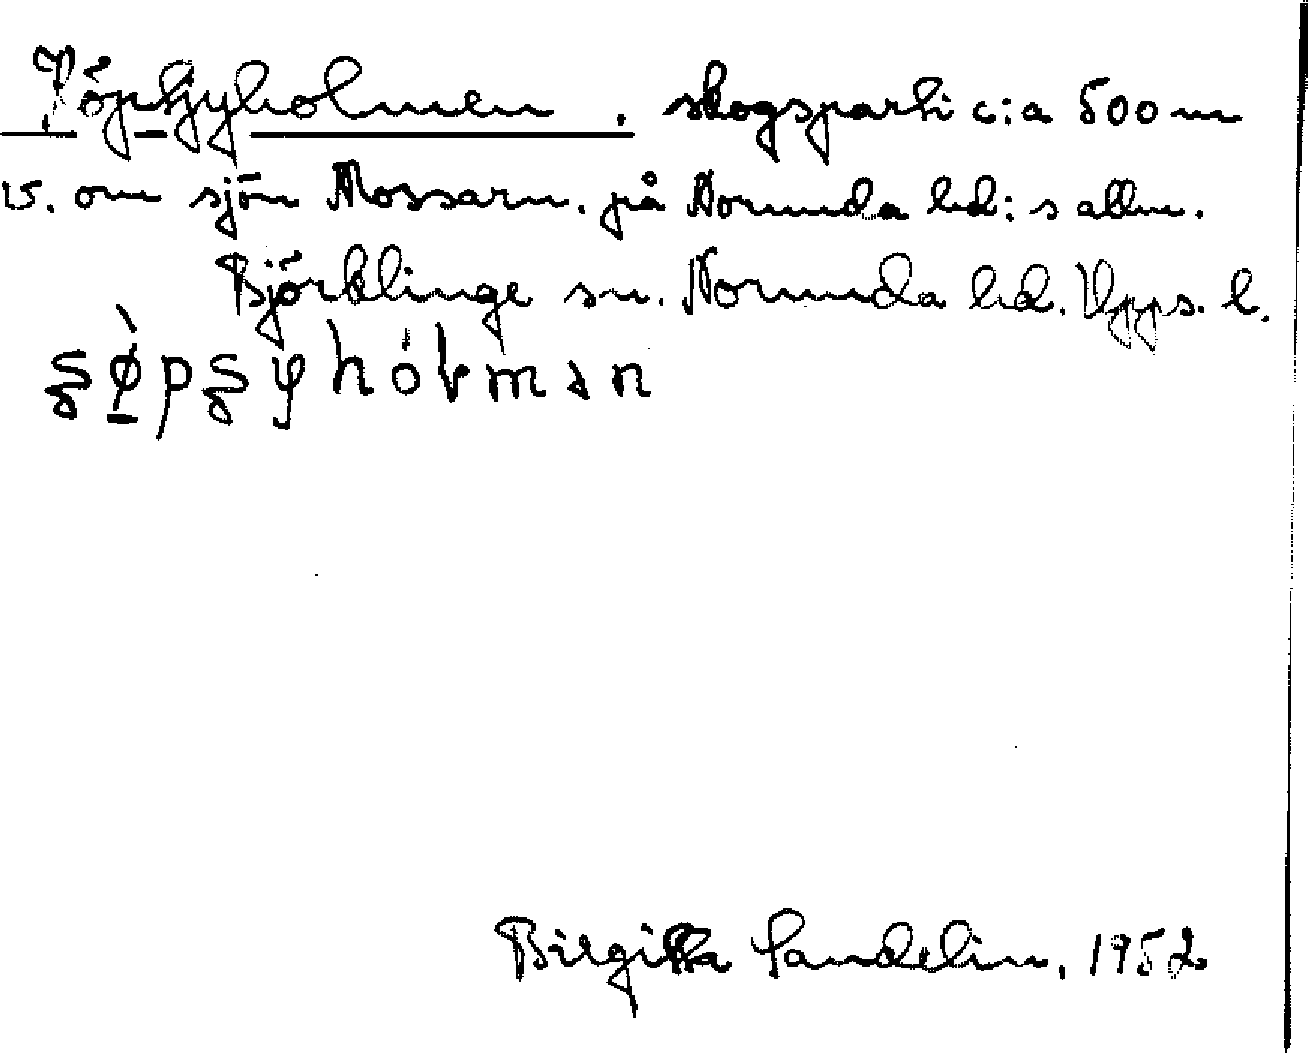 Köptjyholmen. skogsparti c:a 500 m
v. om sjön Mossarn. på Norunda hd:s allm.
Björklinge sn. Norunda hd. Upps. l.
Birgitta Sandelin, 1952